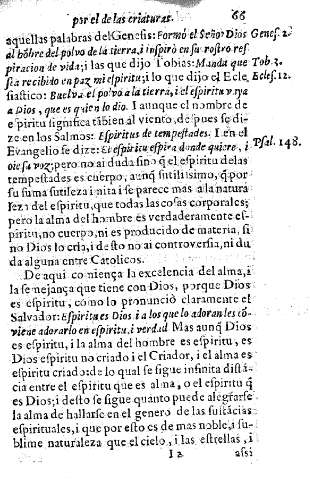 por el de las criaturas. 66
aquellas palabras del Genesis: Formó el Señor Dios Genes. 2.
al hõbre del polvo de la tierra, i inspiró en su rostro res
piracion de vida; i las que dijo Tobias: Manda que Tob. 3.
sea recibido en paz mi espiritu; i lo que dijo el Ecle Ecles. 12.
siastico: Buelva el polvo a la tierra, i el espiritu vaya
a Dios, que es quien lo dio. I aunque el nombre de
espiritu significa tãbien al viento, despues se di
ze en los Salmos: Espiritus de tempestades. I en el Psal. 148.
Evangelio se dize: El espiritu espira donde quiere, i
oìe su voz; pero no ai duda sino q̃ el espiritu de las
tempestades es cuerpo, aunq̃ sutilissimo, q̃ por
su suma sutileza imita i se parece mas a la natura
leza del espiritu, que todas las cosas corporales;
pero la alma del hombre es verdaderamente es-
piritu, no cuerpo, ni es producido de materia, si
no Dios lo cria, i desto no ai controversia, ni du
da alguna entre Catolicos.
De aqui comiença la excelencia del alma, i
la semejança que tiene con Dios, porque Dios
es espiritu, como lo pronunciò claramente el
Salvador: Espiritu es Dios i a los que lo adoran les cõ
viene adorarlo en espiritu, i verdad Mas aunq̃ Dios
es espiritu, i la alma del hombre es espiritu, es
Dios espiritu no criado i el Criador, i el alma es
espiritu criado: de lo qual se sigue infinita distã-
cia entre el espiritu que es alma, o el espiritu q̃
es Dios; i desto se sigue quanto puede alegrarse
la alma de hallarse en el genero de las sustãcias
espirituales, i que por esto es de mas noble, i su-
blime naturaleza que el cielo, i las estrellas, i
I 2 assi